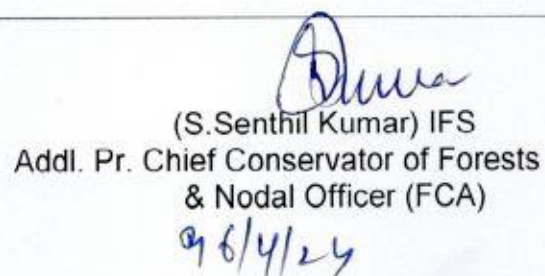 (S.Senthil Kumar) IFS
Addl. Pr. Chief Conservator of Forests
& Nodal Officer (FCA)
6/4/24